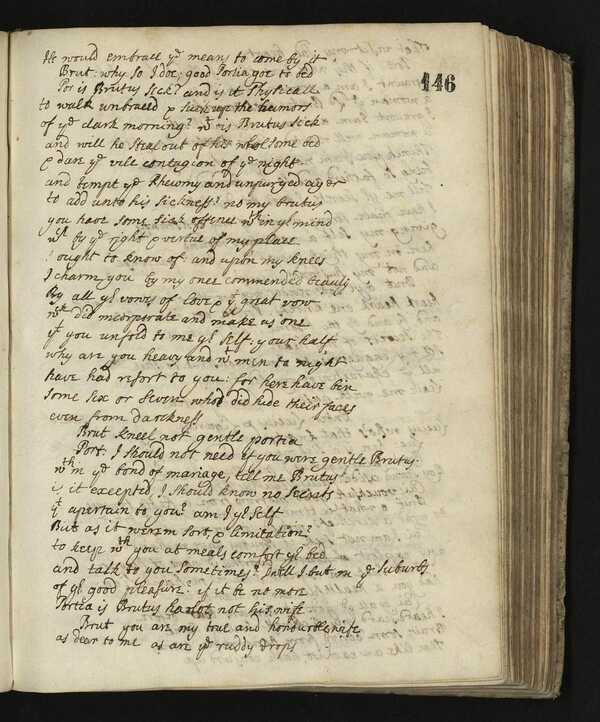 146
He would embrace yͤ means to come by it
Brut: why So I doe; good Portia goe to bed
Por is Brutus Sick? and is it Physicall
to walk unbraced & suck up the humors
of yͤ dark morning? wᵗ is Brutus Sick
and will he Steal out of his whol some bed
& dare yͤ vile contagion of yͤ night
and tempt yͤ Rheumy and unpurged ayer
to add unto his Sickness? no my brutus
you have Some Sick offence wᵗʰin yʳ mind
wᶜʰ by yͤ right & vertue of my place
I ought to know of and upon my knees
I charm you by my once commended beauty
By all yʳ vowes of Love & yᵗ great vow
wᶜʰ did incorporate and make us one
yᵗ you unfold to me yʳ Self: your half
why are you heavy and wᵗ men to night
have had resort to you: for here have bin
Some Six or Seven who did hide their faces
even from darckness
Brut Kneel not gentle portia
Port. I Should not need if you were gentle Brutus.
wᵗʰin yͤ bond of mariage, tell me Brutus
is it excepted, I Should know no Secrets
yᵗ apertain to you? am I yʳ Self
But as it were in Sort, & limitation?
to keep wᵗʰ you at meals comfort yʳ bed
and talk to you Sometimes? Dwell I but in yͤ Suburbs
of yʳ good pleasure? if it be no more
Portia is Brutus harlot not his wife
Brut you are my true and honourble wife
as deer to me as are yͤ ruddy drops